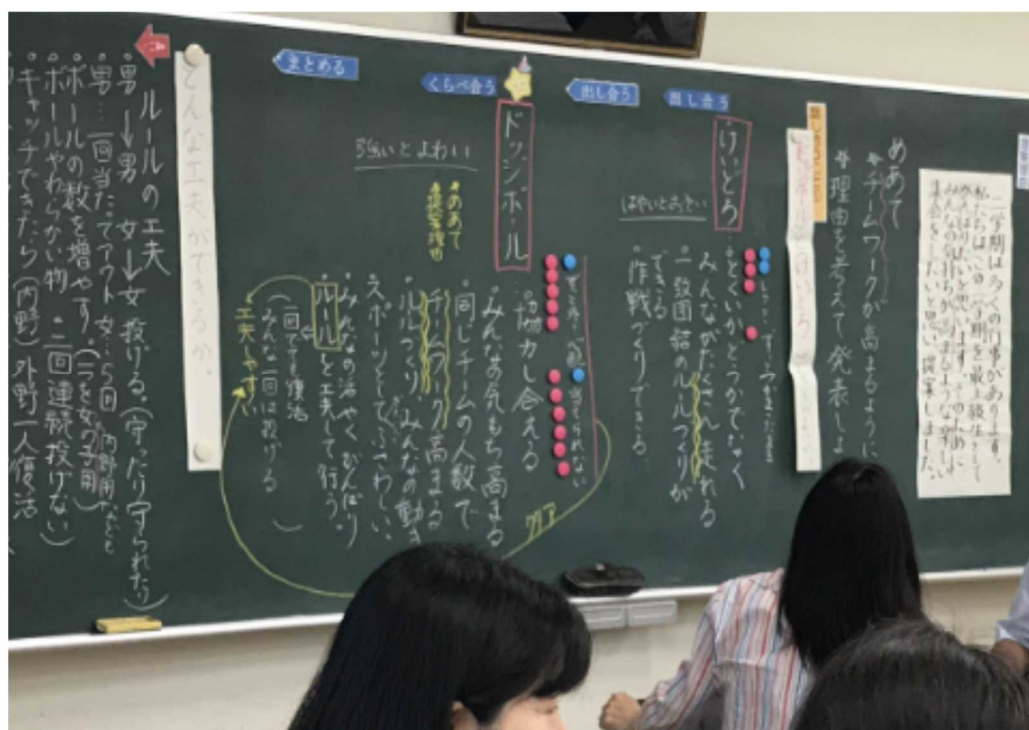 二学期は多くの行事があります。
私たちはこの二学期を最上級生として
がんばりたいと思います。そのために
みんなの気持ちが高まるような楽しい
集会をしたいと思い、提案しました。
めあて
チームワークが高まるように
理由を考えて発表しよ
出し合う
けいどろ
はやいとおそい
とくいかどうかでなく
みんながたくさん走れる
一致団結のルールづくりが
できる
作戦づくりできる
出し合う
くらべ合う
ドッジボール
強いとよわい
めあて
協力し合える
みんなの気もち高まる
同じチームの人数で
チームワーク高まる
ルールづくり みんなの動き
スポーツとしてふさわしい
みんなの活やく がんばり
ルールを工夫して行う。
みんな一回は投げる
工夫しやすい
クリア
まとめる
どんな工夫ができるか。
ルールの工夫
男→男 女→女 投げる。(守ったり守られたり)
男…一回当たってアウト 女…5回
ボールの数を増やす。
ボールやわらかい物・二回連続投げない
キャッチできたら(内野)外野一人復活